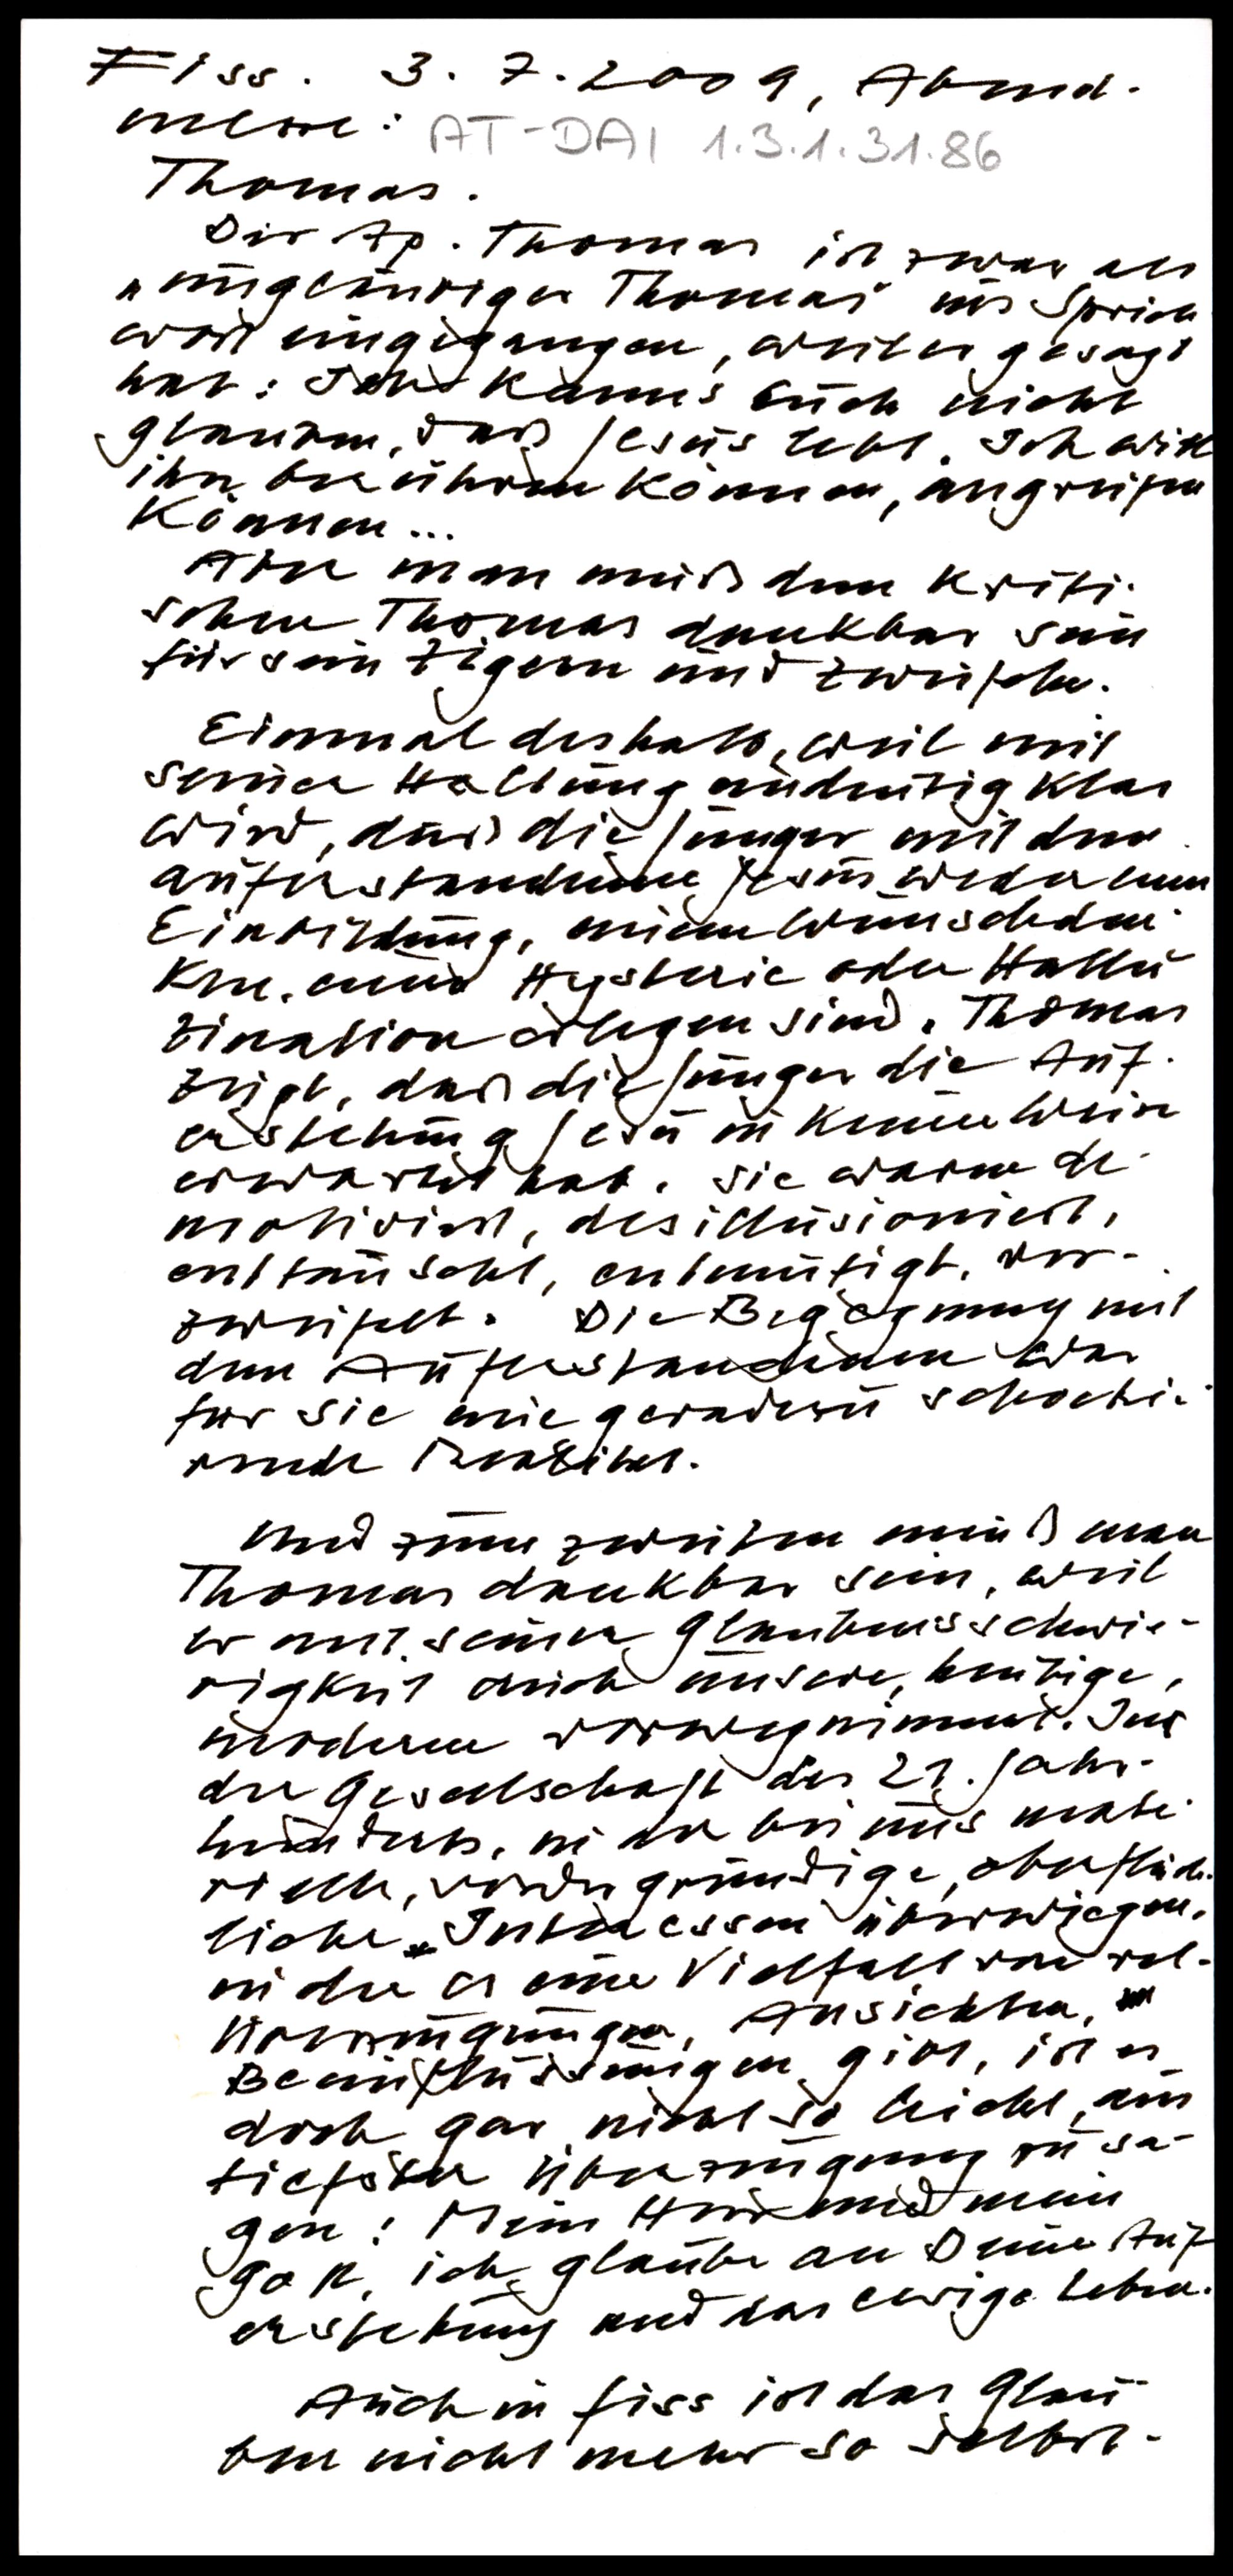 Fiss. 3.7.2009, Abend-
messe: AT-DAI 1.3.1.31.86
Thomas.
Der Ap. Thomas ist zwar als
"ungläubiger Thomas" ins Sprich
wort eingegangen, weil er gesagt
hat: Ich kanns Euch nicht
glauben, daß Jesus lebt. Ich will
ihn berühren können, angreifen
können...
Aber man muß dem kriti-
schen Thomas dankbar sein
für sein Zögern und Zweifeln.
Einmal deshalb, weil mit
seiner Haltung eindeutig klar
wird, daß die Jünger mit dem
auferstandenen Jesus weder einer
Einbildung, einem Wunschden-
ken, einer Hysterie oder Hallu
zination erlegen sind. Thomas
zeigt, daß die Jünger die Auf-
erstehung Jesu in keiner Weise
erwartet hab. Sie waren de-
motiviert, desillusioniert,
enttäuscht, entmutigt, ver-
zweifelt. Die Begegnung mit
dem Auferstandenen war
für sie eine geradezu schocki-
rende Realität.
Und zum zweiten muß man
Thomas dankbar sein, weil
er mit seiner Glaubensschwie-
rigkeit auch unsere, heutige,
moderne vorwegnimmt. In
der Gesellschaft des 21. Jahr-
hunderts, in der bei uns mate-
rielle, vordergründige, oberfläch-
liche Interessen überwiegen,
in der es eine Vielfalt von rel.
Überzeugungen, Ansichten,
Beeinflussungen gibt, ist es
doch gar nicht so leicht, aus
tiefster Überzeugung zu sa-
gen: Mein Herr und mein
Gott, ich glaube an Deine Auf
erstehung und das ewige Leben.
Auch in Fiss ist das Glau
ben nicht mehr so selbst-